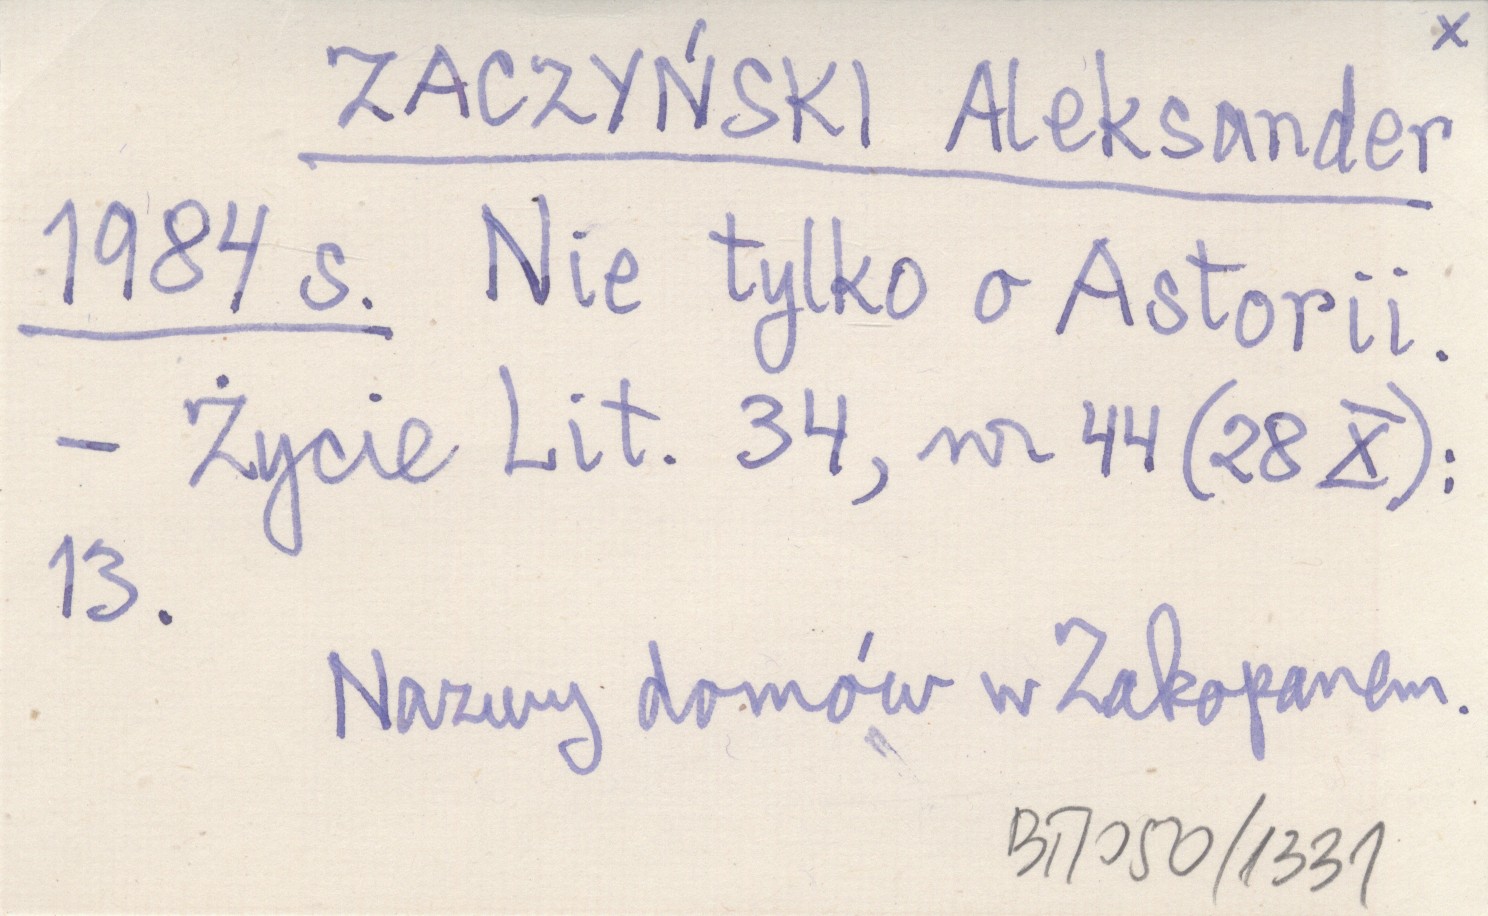 x
ZACZYŃSKI Aleksander
1984 s. Nie tylko o Astorii.
- Życie Lit. 34, nr 44 (28 X):
13.
Nazwy domów w Zakopanem.